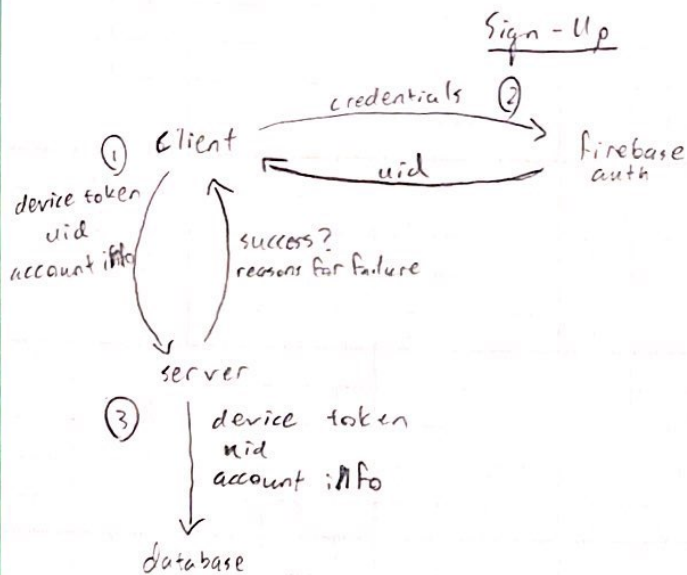 Sign-Up
credentials
②
①
Client
firebase
auth
uid
device token
uid
account info
success?
reasons for failure
server
③
device token
uid
account info
database